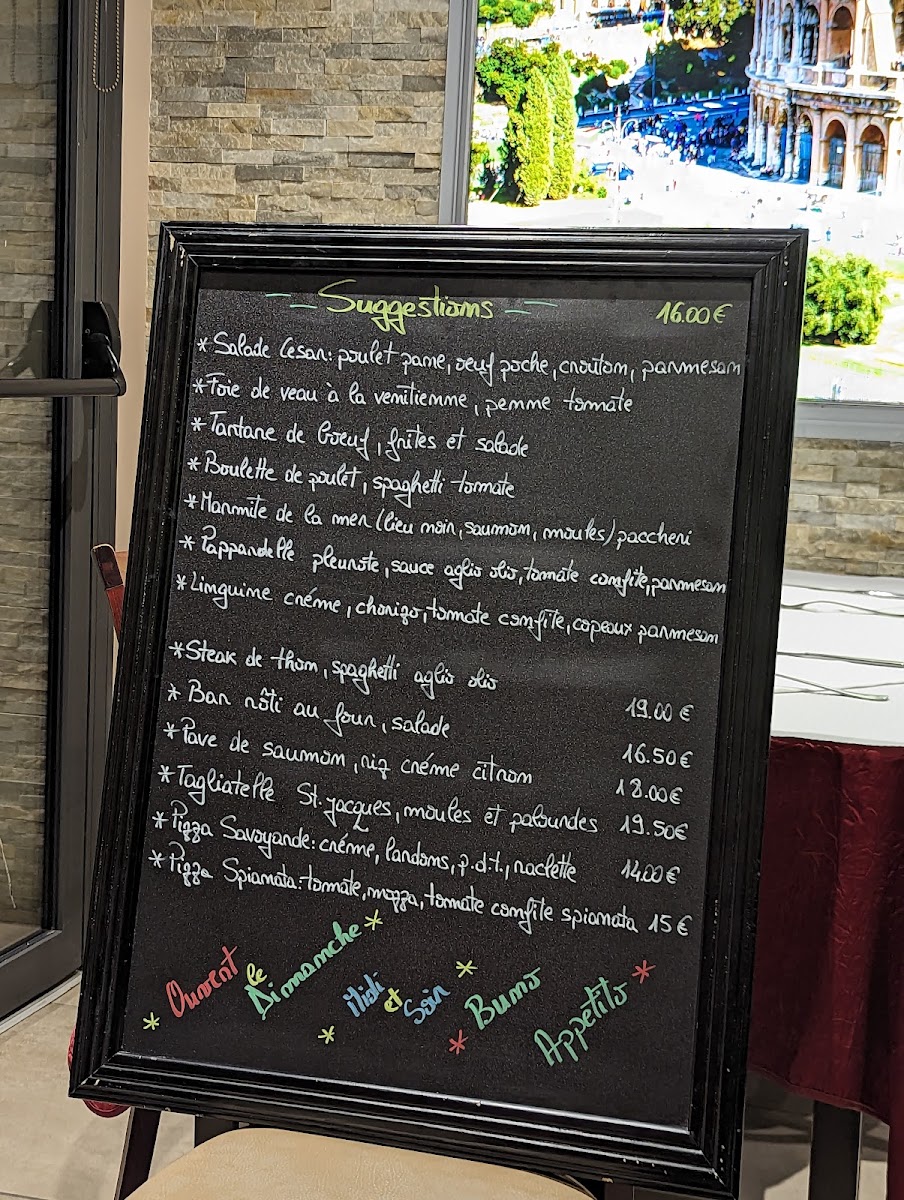 Suggestions 16.00€
* Salade Cesar: poulet pané, oeuf poche, crouton, parmesan
* Foie de veau à la venitienne, penne tomate
* Tartare de boeuf, frites et salade
* Boulette de poulet, spaghetti tomate
* Marmite de la mer (lieu noir, saumon, moules) paccheri
* Pappardelle pleurote, sauce aglio olio, tomate confite, parmesan
* Linguine créme, chorizo, tomate confite, copeaux parmesan
* Steak de thon, spaghetti aglio olio 19.00€
* Bar rôti au four, salade 16.50€
* Pave de saumon, riz créme citron 18.00€
* Tagliatelle St. jacques, moules et palourdes 19.50€
* Pizza Savoyarde: créme, lardons, p.d.t., raclette 14.00€
* Pizza Spianata: tomate, mozza, tomate confite spianata 15€
* Ouvert le Dimanche *
* Midi et Soir *
* Buno Appetito *